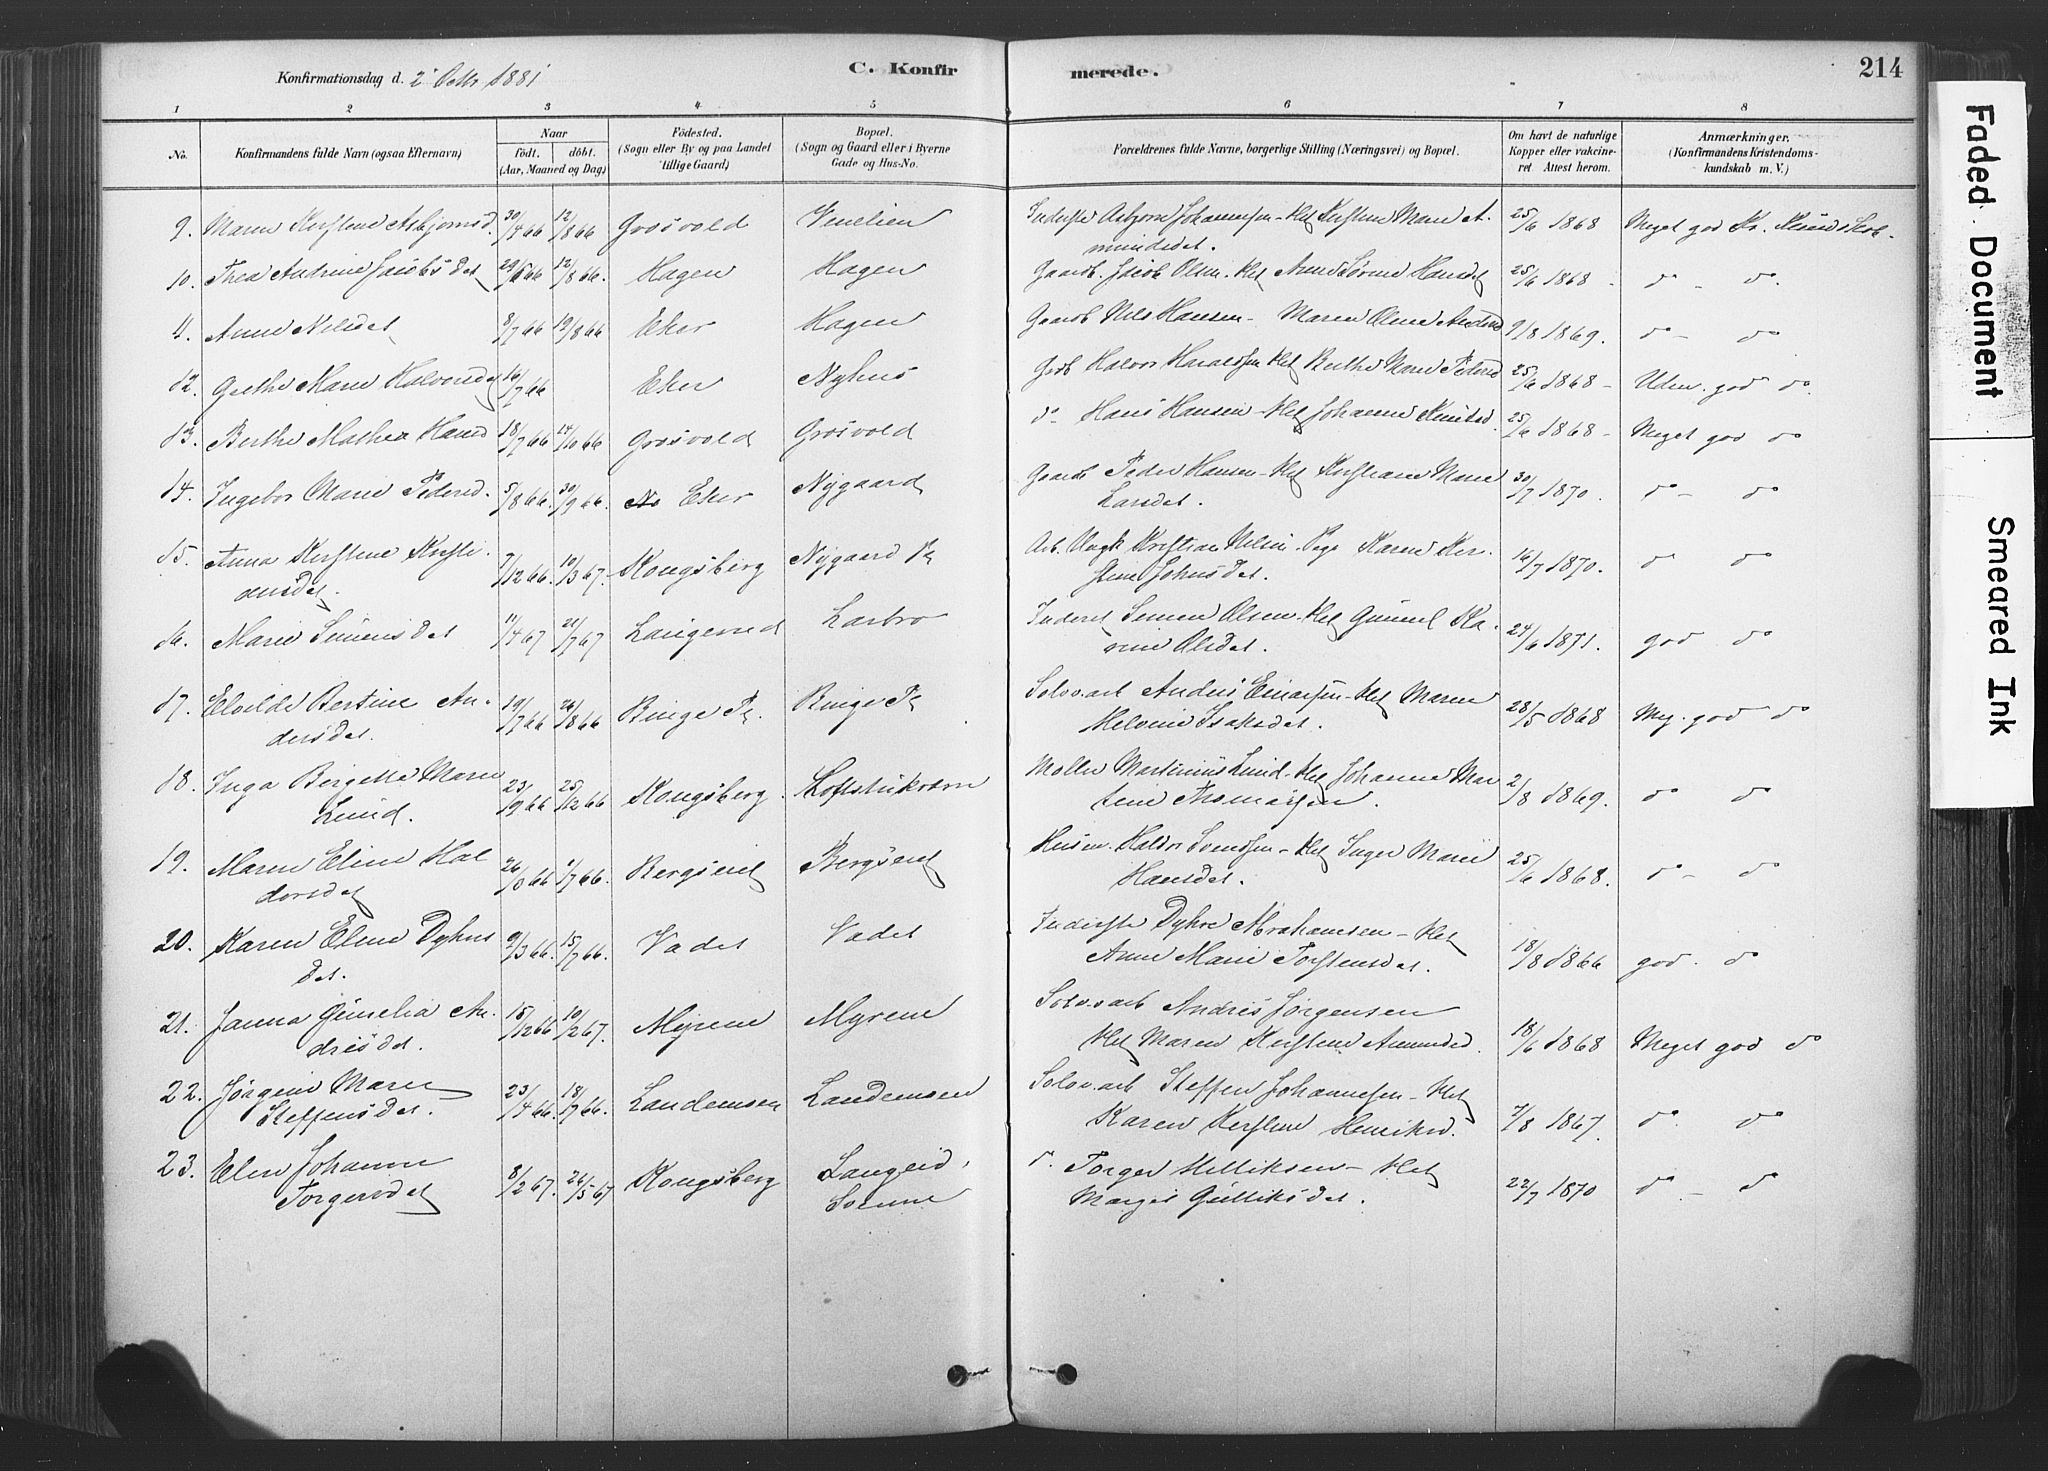 Konfirmationsdag d. 2 Octb 1881
C. Konfirmerede.
214
1 2 3 4 5 6 7 8
No.
Konfirmandens fulde Navn (ogsaa Efternavn)
Naar
födt. döbt.
(Aar, Maaned og Dag)
Födested.
(Sogn eller By og paa Landet
tillige Gaard)
Bopæl.
(Sogn og Gaard eller i Byerne
Gade og Hus-No.
Forældrenes fulde Navne, borgerlige Stilling (Næringsvei) og Bopæl.
Om havt de naturlige
Kopper eller vakcine-
ret Attest herom.
Anmærkninger.
(Konfirmandens Kristendoms-
kundskab m. V.)
9. Maren Kirstine Asbjørnsd. 30/4 66 12/8 66 Grosvold Venelien Inderste Asbjørn Johannesen Kirstine Marie A-
mundsdet. 25/6 1868 Meget god Kr. Kundskab
10. Thea Antrine Jacobsdet 29/5 66 12/8 66. Hagen Hagen Gaardb. Jacob Olsen Anne Sørine Hansdet 25/6 1868 do do.
Anne Nilsdet 8/7 66 19/8 66 Eker Hagen Gaardb Nils Hansen Maren Oline Andersd 9/8 1869. do do
12. Grethe Marie Halvorsdet 16/7 66 Eker Nyhus Gdb Halvor Haraldsen Berthe Marie Pedersd 25/6 1868 Udm. god do.
13. Berthe Mathea Hansd 18/7 66 14/10 66 Grosvold Grosvold do Hans Hansen Johanne Knudsd. 25/6 1868 Meget god do
14. Ingebor Marie Pedersd. 5/8 66. 30/9 66. Eker Nygaard Gaardb Peder Hansen Kirstiane Marie
Larsdet. 30/7 1870. do do
15. Anna Kirstine Kristi-
ansdet. 7/12 66. 10/3 67. Kongsberg Nygaard Arb. Kristian Nilsen Pige Karen Kir-
stine Johnsdet. 16/7 1870. do do
16. Marie Simensdet 11/4 67 21/7 67 Langerud Larbro Inderst Simen Olsen Gunnel Ka-
rine Olsdet. 24/6 1871. god do
17. Elvilde Bertine An-
dersdet. 19/7 66 26/8 66 Binge Binge Sølvarb Anders Einarsen Maren
Helvine Isaksdet. 28/5 1868 Mg. god do
18. Inga Birgette Marie
Lund. 23/9 66 25/12 66 Kongsberg Møller Martinius Lund Johanne Mar
tine 2/8 1869. do do
19. Maren Eline Hal
dorsdet 1/7 66. Bergseiet Bergseiet Husm. Haldor Svendsen Inger Marie
Hansdet. 25/6 1868. do do
20. Karen Eline Dyhus
det. 9/3 66. 15/7 66. Vadet Vadet Inderste Dyhre Abrahamsen
Anne Marie Torstensdet. 18/8 1866 god. do
21. Janna Gunelia An-
dreasdet. 15/12 66 10/2 67. Myrene Myrene Sølvarb Andreas Jørgensen
Maren Kirstine Amundsd. 18/6 1868 Meget god do
22. Jørgine Marie
Steffensdet. 23/4 66. 18/7 66. Landemsen Landemsen Sølvarb Steffen Johannesen
Karen Kirstine Henriksd. 7/8 1867. do do
23. Elen Johanne
Torgersdet 8/2 67. 26/5 67 Kongsberg Langlid, do. Torger
Margit Gulliksdet. 22/7 1870 do do
Faded Document
Smeared Ink